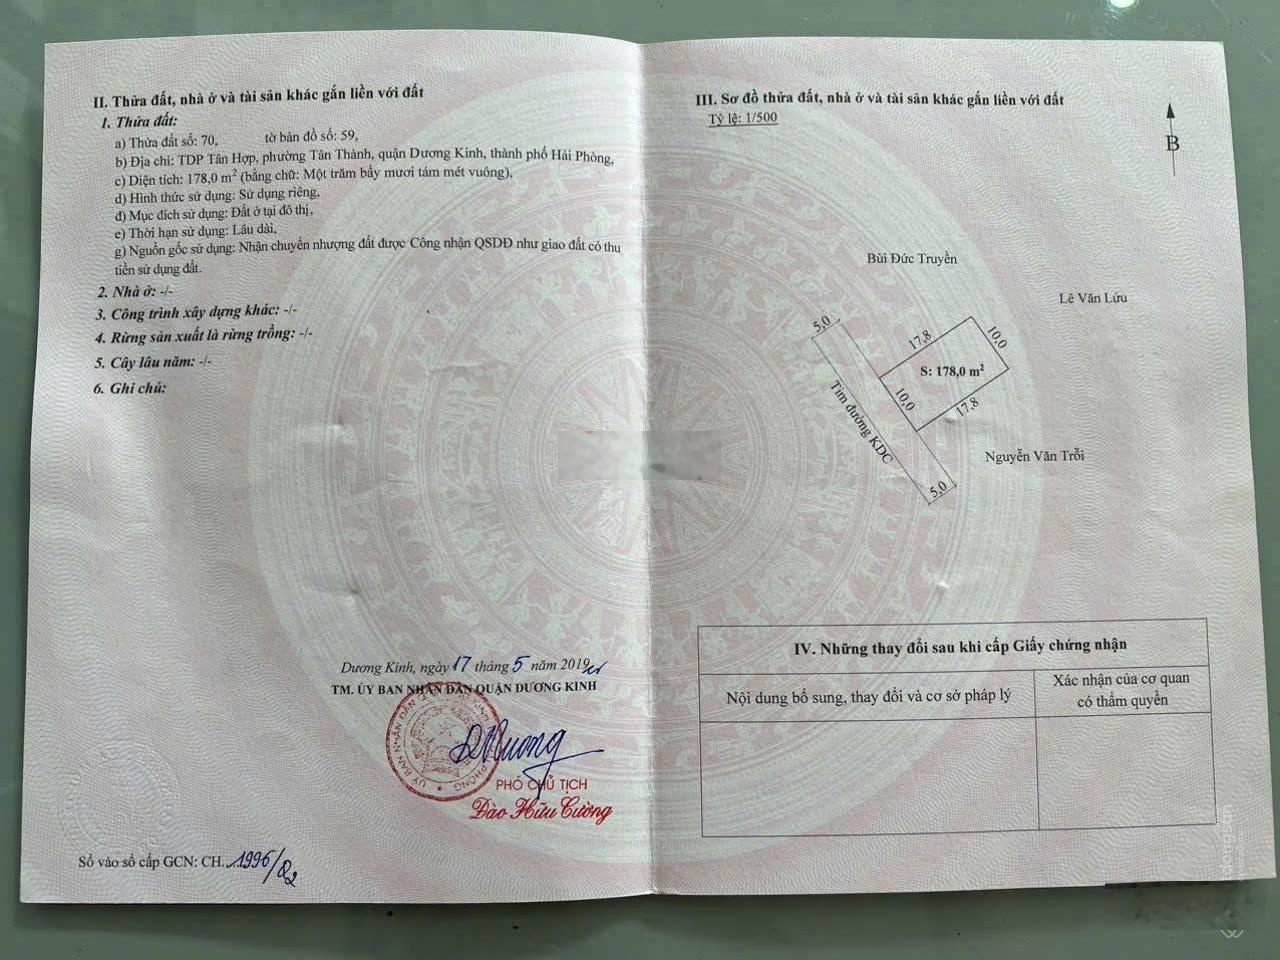 II. Thửa đất, nhà ở và tài sản khác gắn liền với đất
1. Thửa đất:
a) Thửa đất số: 70, tờ bản đồ số: 59,
b) Địa chỉ: TDP Tân Hợp, phường Tân Thành, quận Dương Kinh, thành phố Hải Phòng,
c) Diện tích: 178,0 m² (bằng chữ: Một trăm bẩy mươi tám mét vuông),
d) Hình thức sử dụng: Sử dụng riêng,
đ) Mục đích sử dụng: Đất ở tại đô thị,
e) Thời hạn sử dụng: Lâu dài,
g) Nguồn gốc sử dụng: Nhận chuyển nhượng đất được Công nhận QSDĐ như giao đất có thu
tiền sử dụng đất.
2. Nhà ở: -/-
3. Công trình xây dựng khác: -/-
4. Rừng sản xuất là rừng trồng: -/-
5. Cây lâu năm: -/-
6. Ghi chú:
Dương Kinh, ngày 17 tháng 5 năm 2019
TM. ỦY BAN NHÂN DÂN QUẬN DƯƠNG KINH
PHÓ CHỦ TỊCH
Đào Hữu Cường
Số vào sổ cấp GCN: CH. 1996/Q2
III. Sơ đồ thửa đất, nhà ở và tài sản khác gắn liền với đất
Tỷ lệ: 1/500
B
Bùi Đức Truyền
Lê Văn Lứu
5,0
17,8
10,0
S: 178,0 m²
10,0
17,8
Tim đường KDC
Nguyễn Văn Trỗi
5,0
IV. Những thay đổi sau khi cấp Giấy chứng nhận
Nội dung bổ sung, thay đổi và cơ sở pháp lý
Xác nhận của cơ quan
có thẩm quyền